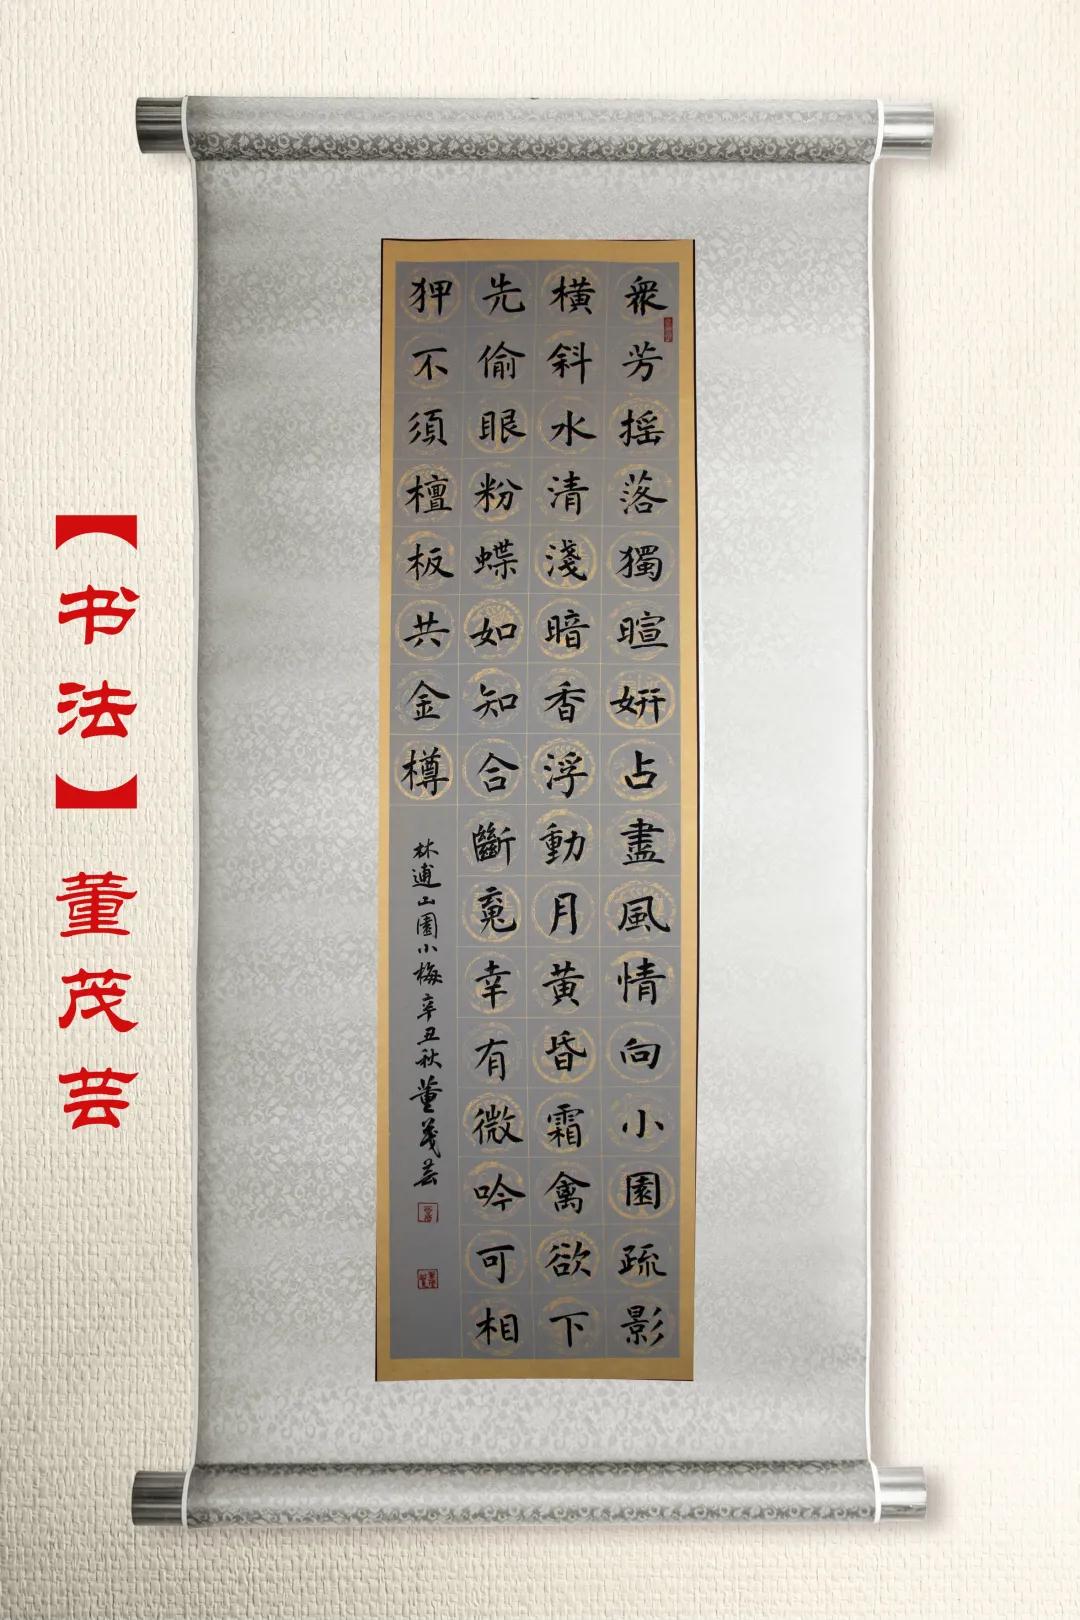 衆芳摇落獨暄妍占盡風情向小園疏影
橫斜水清淺暗香浮動月黃昏霜禽欲下
先偷眼粉蝶如知合斷䰟幸有微吟可相
狎不須檀板共金樽
林逋山園小梅辛丑秋董茂芸
【书法】董茂芸